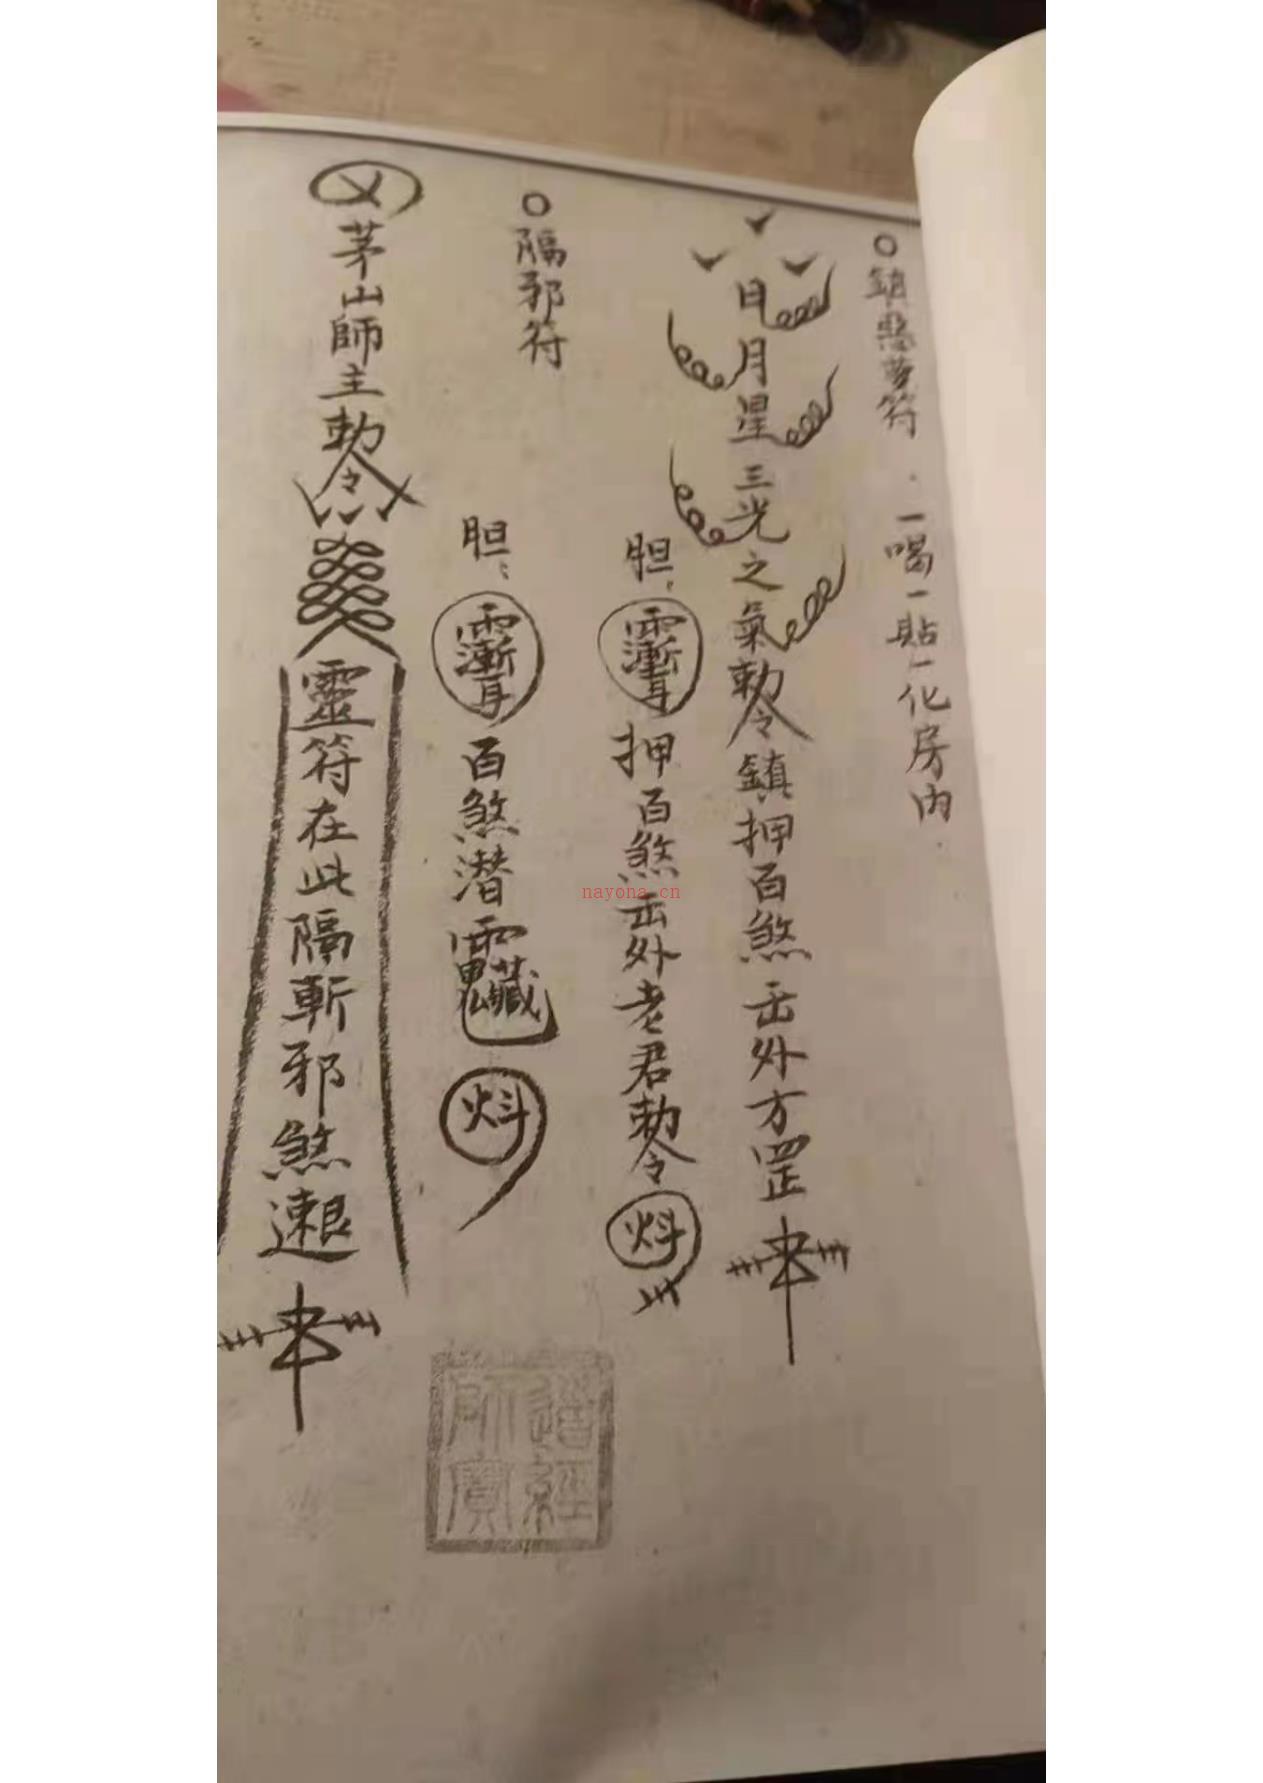 ○鎮惡夢符．一喝一貼一化房内．
日月星三光之氣勅令鎮押百煞出外方罡
胆：
押百煞出外老君勅令
○隔邪符
胆：
百煞潛
茅山師主勅令
靈符在此隔斬邪煞
道經師寶
nayona.cn